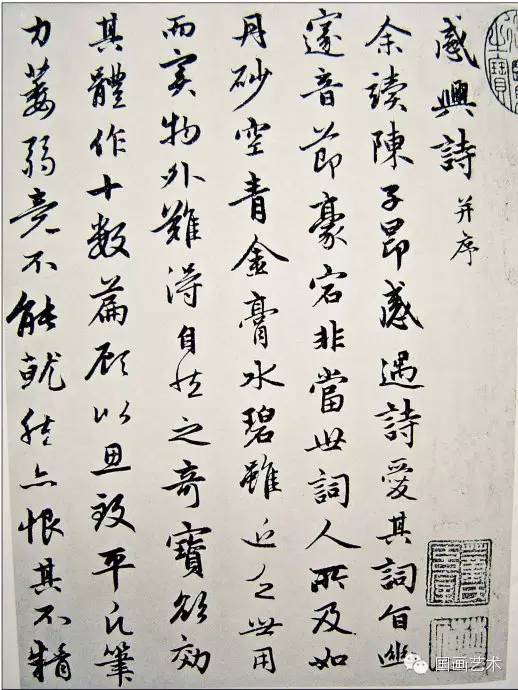 感興詩 并序
余讀陳子昂感遇詩愛其詞旨幽
邃音節豪宕非當世詞人所及如
丹砂空青金膏水碧雖近乏世用
而實物外難得自然之奇寶欲効
其體作十數篇顧以思致平凡筆
力萎弱竟不能就然亦恨其不精
国画艺术